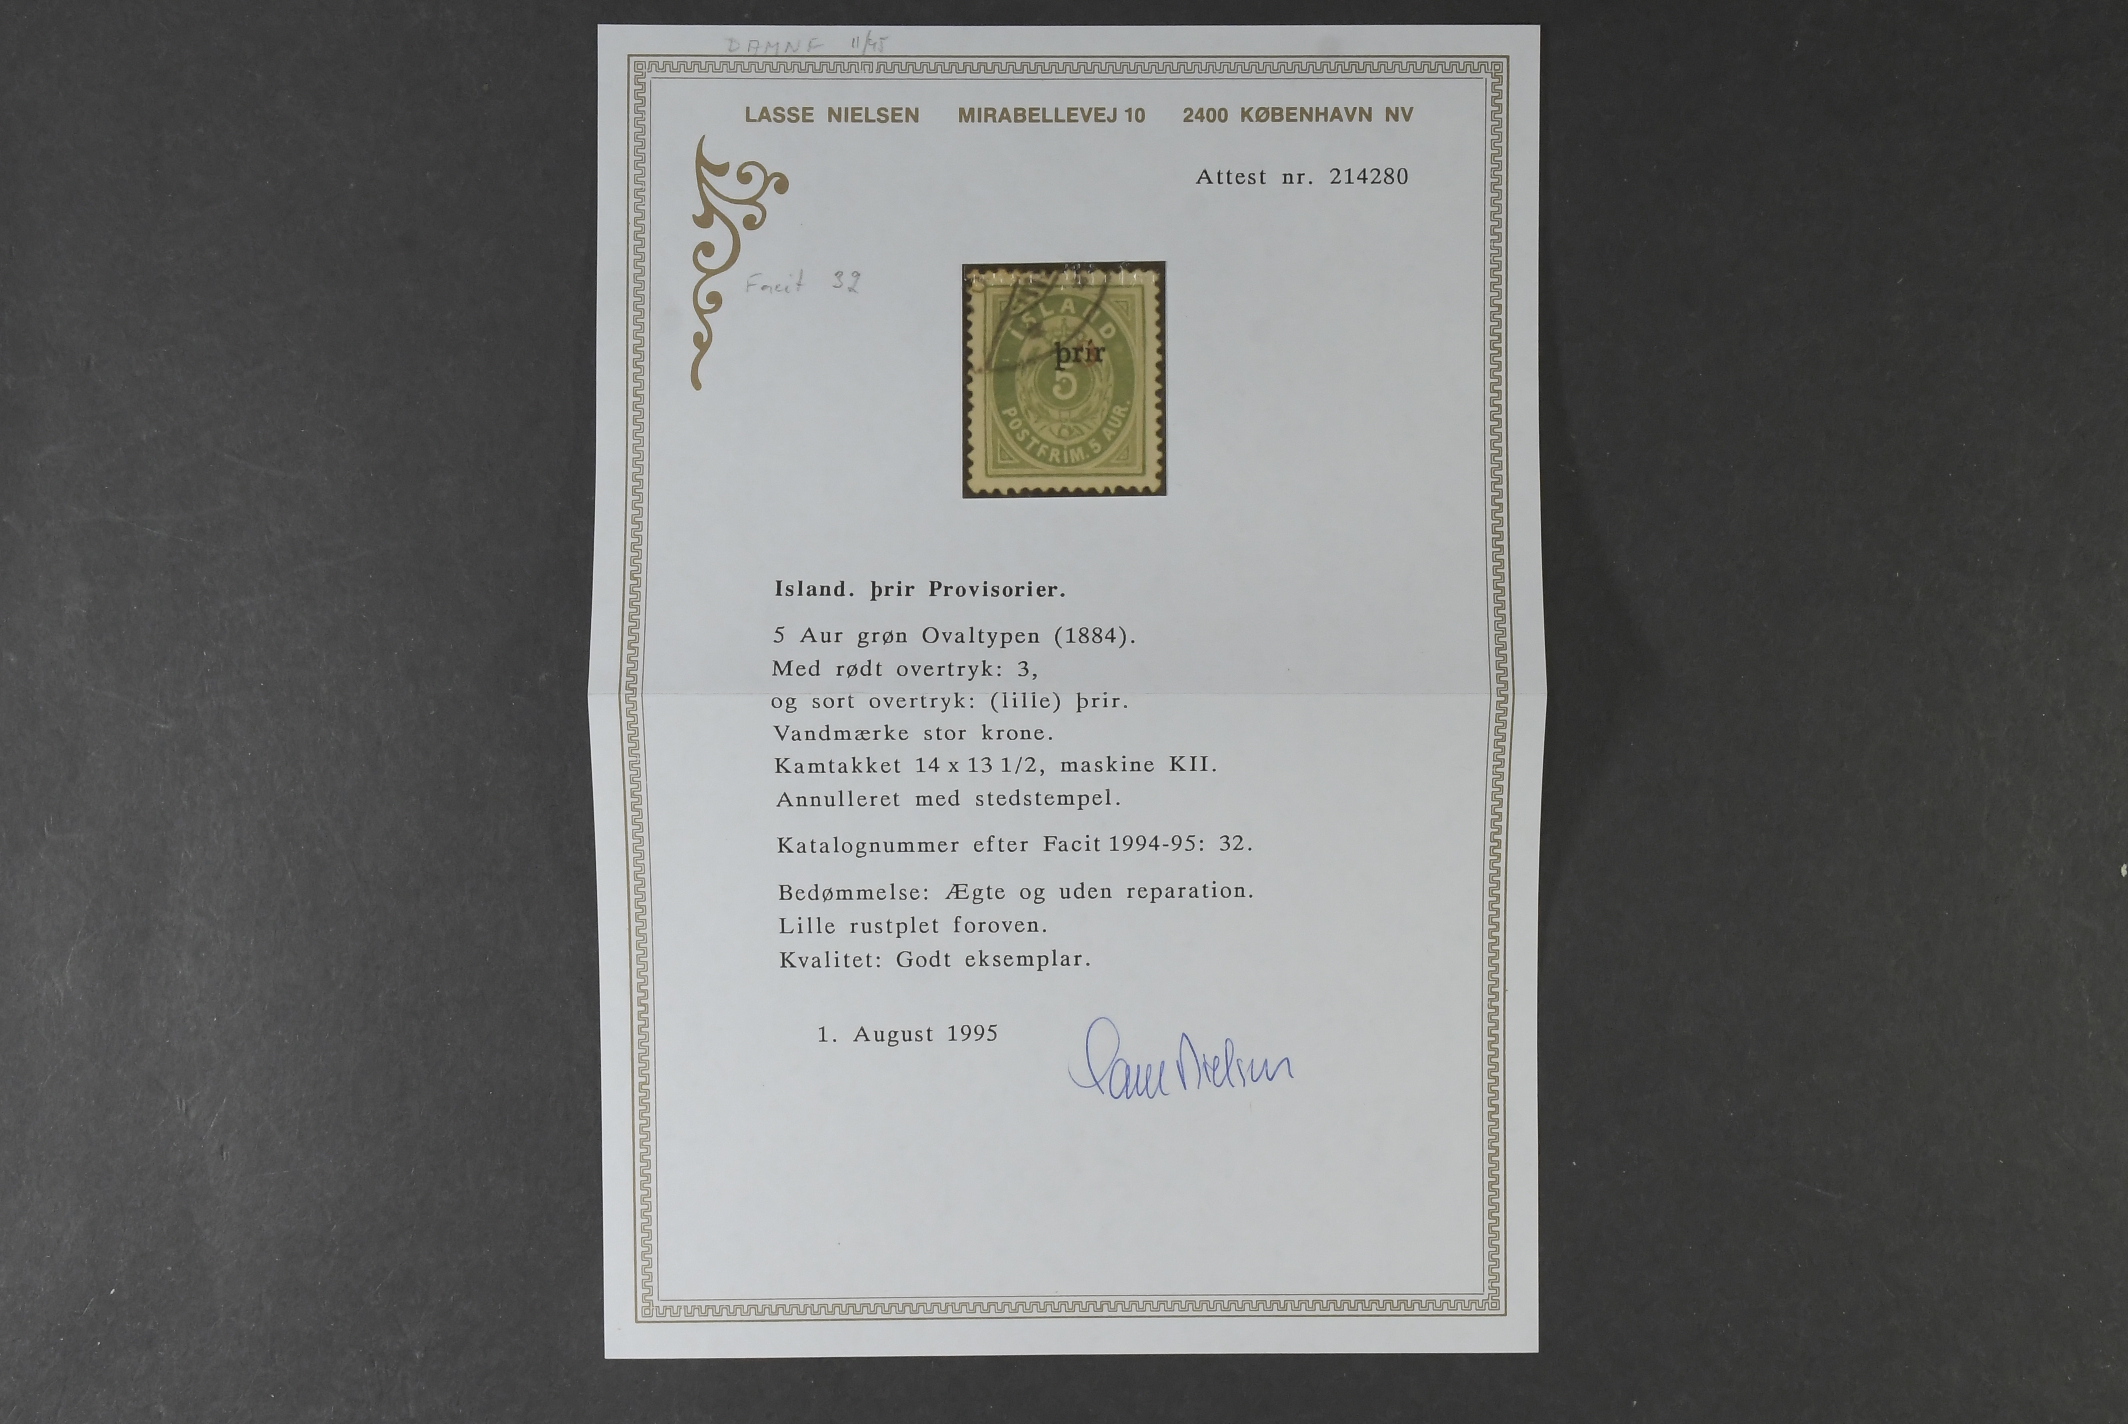 11/95
LASSE NIELSEN MIRABELLEVEJ 10 2400 KØBENHAVN NV
Attest nr. 214280
Facit 32
ÍSLAND
þrír
5
POSTFRIM. 5 AUR.
Island. þrir Provisorier.
5 Aur grøn Ovaltypen (1884).
Med rødt overtryk: 3,
og sort overtryk: (lille) þrir.
Vandmærke stor krone.
Kamtakket 14 x 13 1/2, maskine KII.
Annulleret med stedstempel.
Katalognummer efter Facit 1994-95: 32.
Bedømmelse: Ægte og uden reparation.
Lille rustplet foroven.
Kvalitet: Godt eksemplar.
1. August 1995
Lasse Nielsen